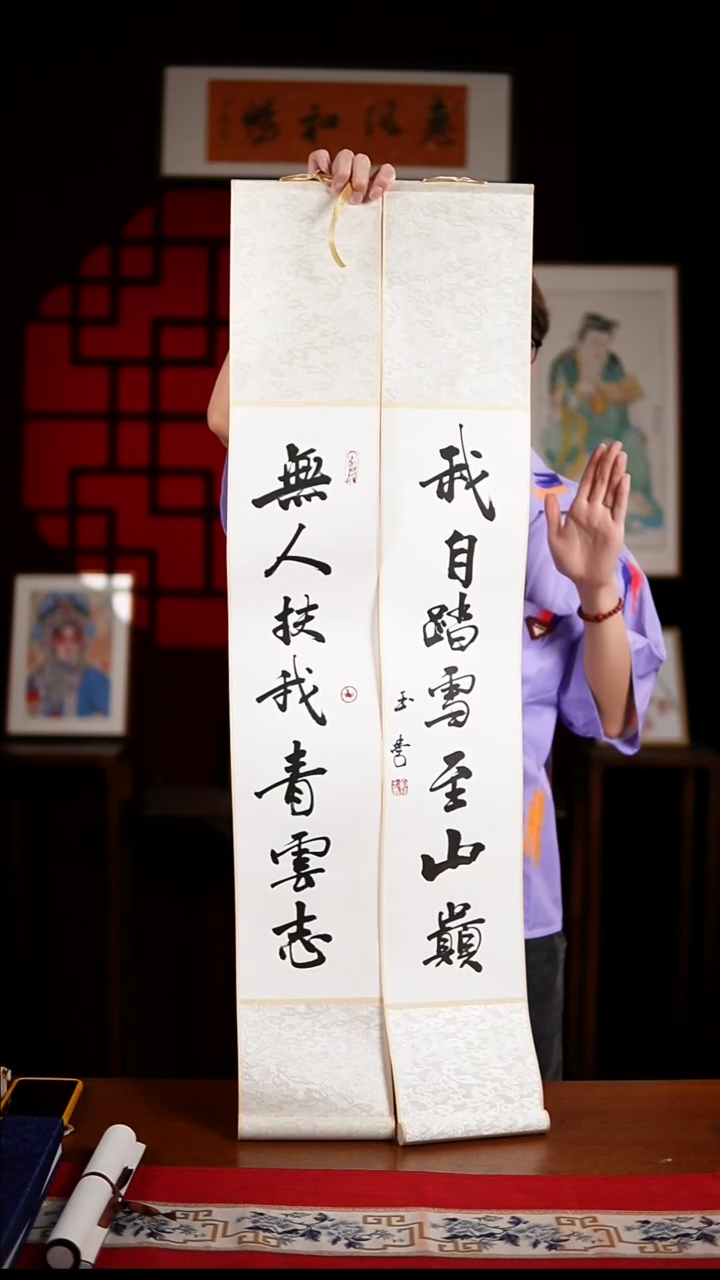 惠風和暢
無人扶我青雲志
我自踏雪至山巔
玉書